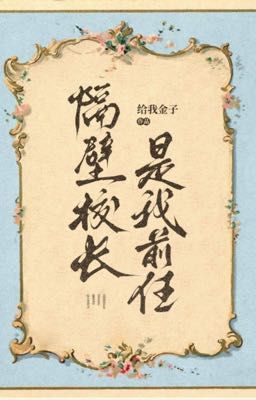 隔壁校长
是我前任
给我金子
作品